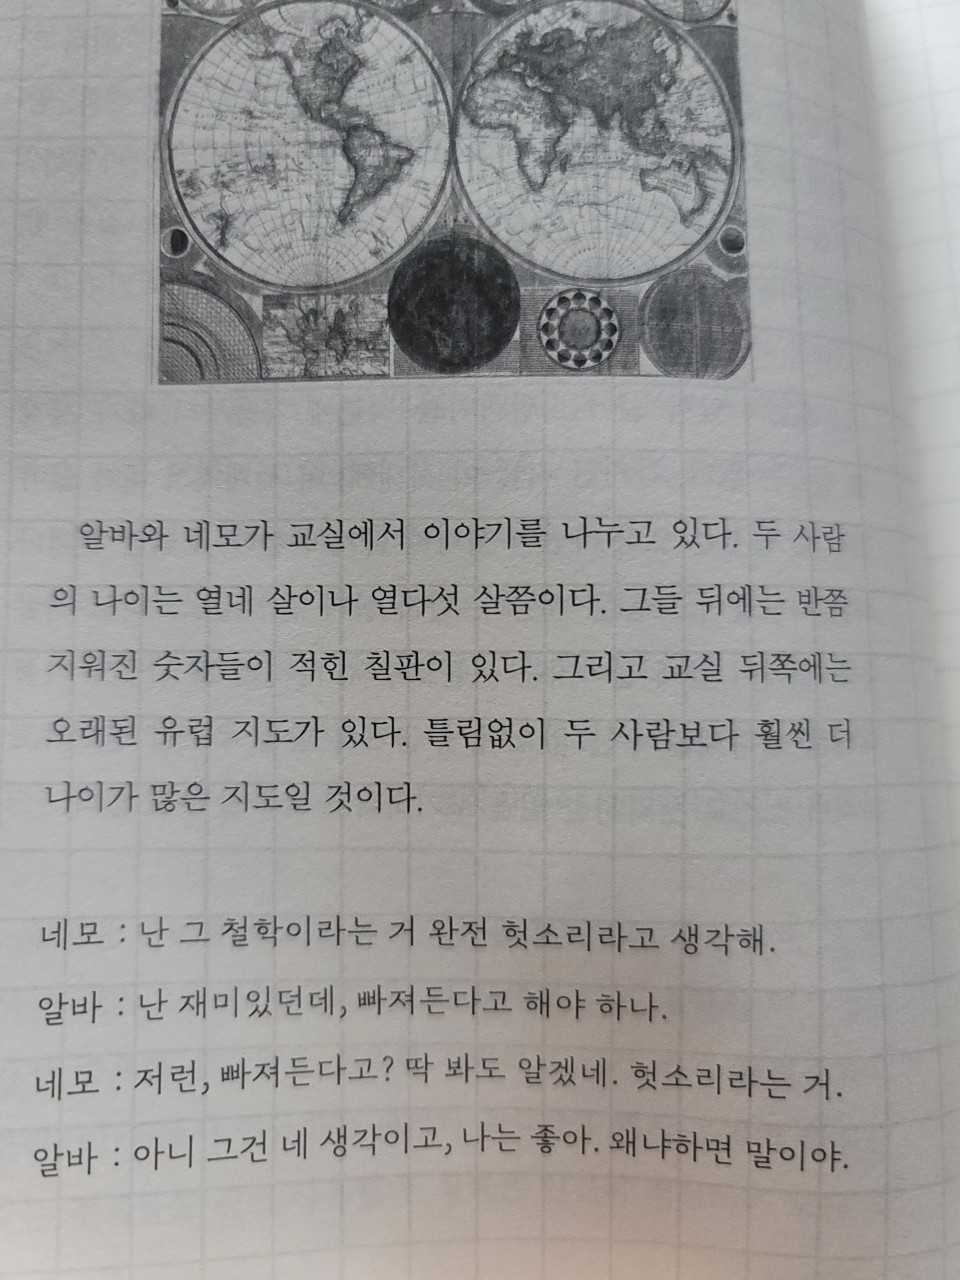 알바와 네모가 교실에서 이야기를 나누고 있다. 두 사람
의 나이는 열네 살이나 열다섯 살쯤이다. 그들 뒤에는 반쯤
지워진 숫자들이 적힌 칠판이 있다. 그리고 교실 뒤쪽에는
오래된 유럽 지도가 있다. 틀림없이 두 사람보다 훨씬 더
나이가 많은 지도일 것이다.
네모 : 난 그 철학이라는 거 완전 헛소리라고 생각해.
알바 : 난 재미있던데, 빠져든다고 해야 하나.
네모 : 저런, 빠져든다고? 딱 봐도 알겠네. 헛소리라는 거.
알바 : 아니 그건 네 생각이고, 나는 좋아. 왜냐하면 말이야.